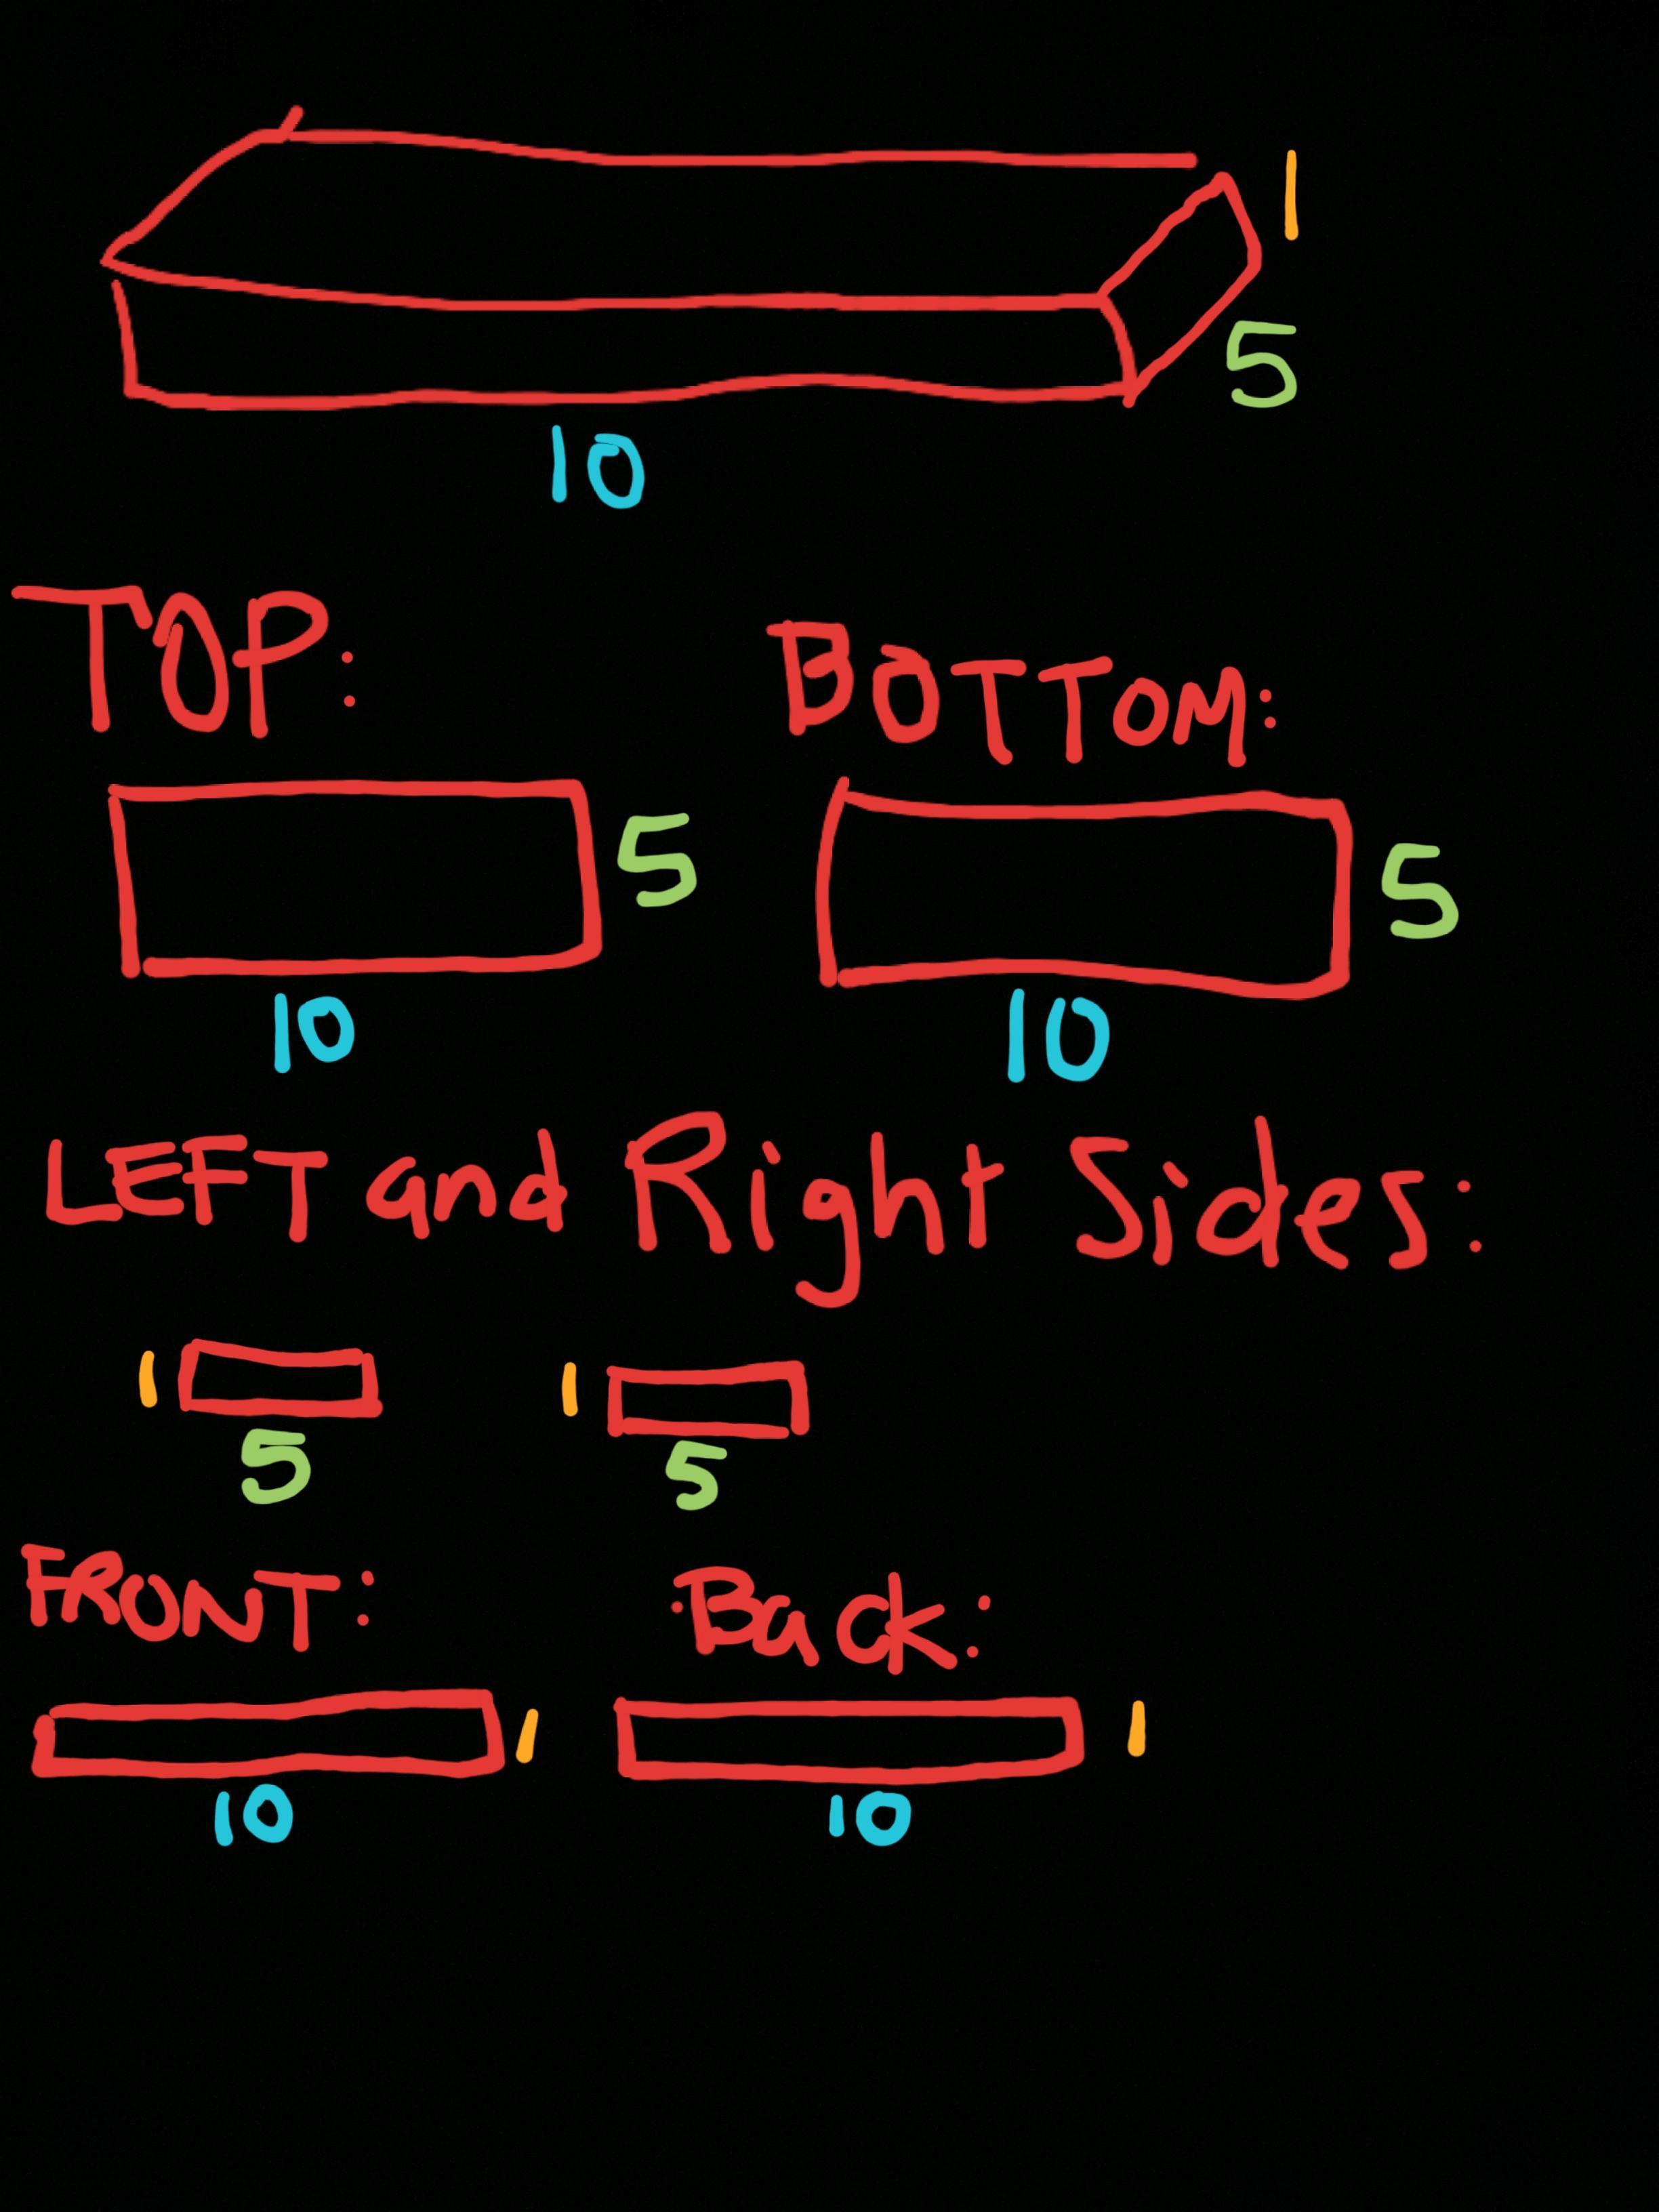 1
5
10
TOP: BOTTOM:
5 5
10 10
LEFT and Right Sides:
1 1
5 5
FRONT: Back:
1 1
10 10